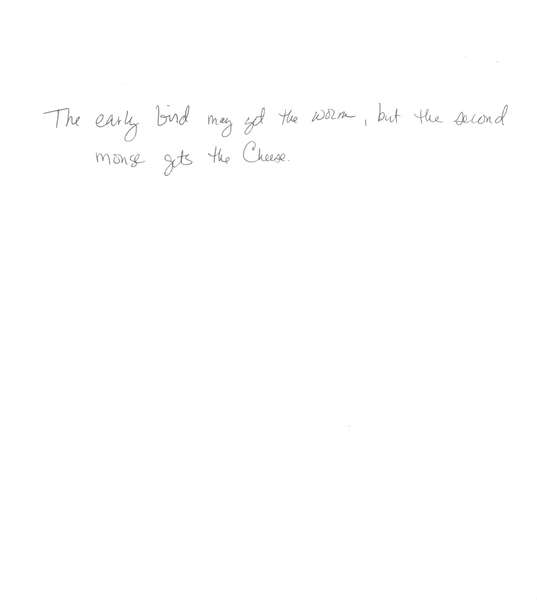 The early bird may get the worm, but the second
mouse gets the Cheese.